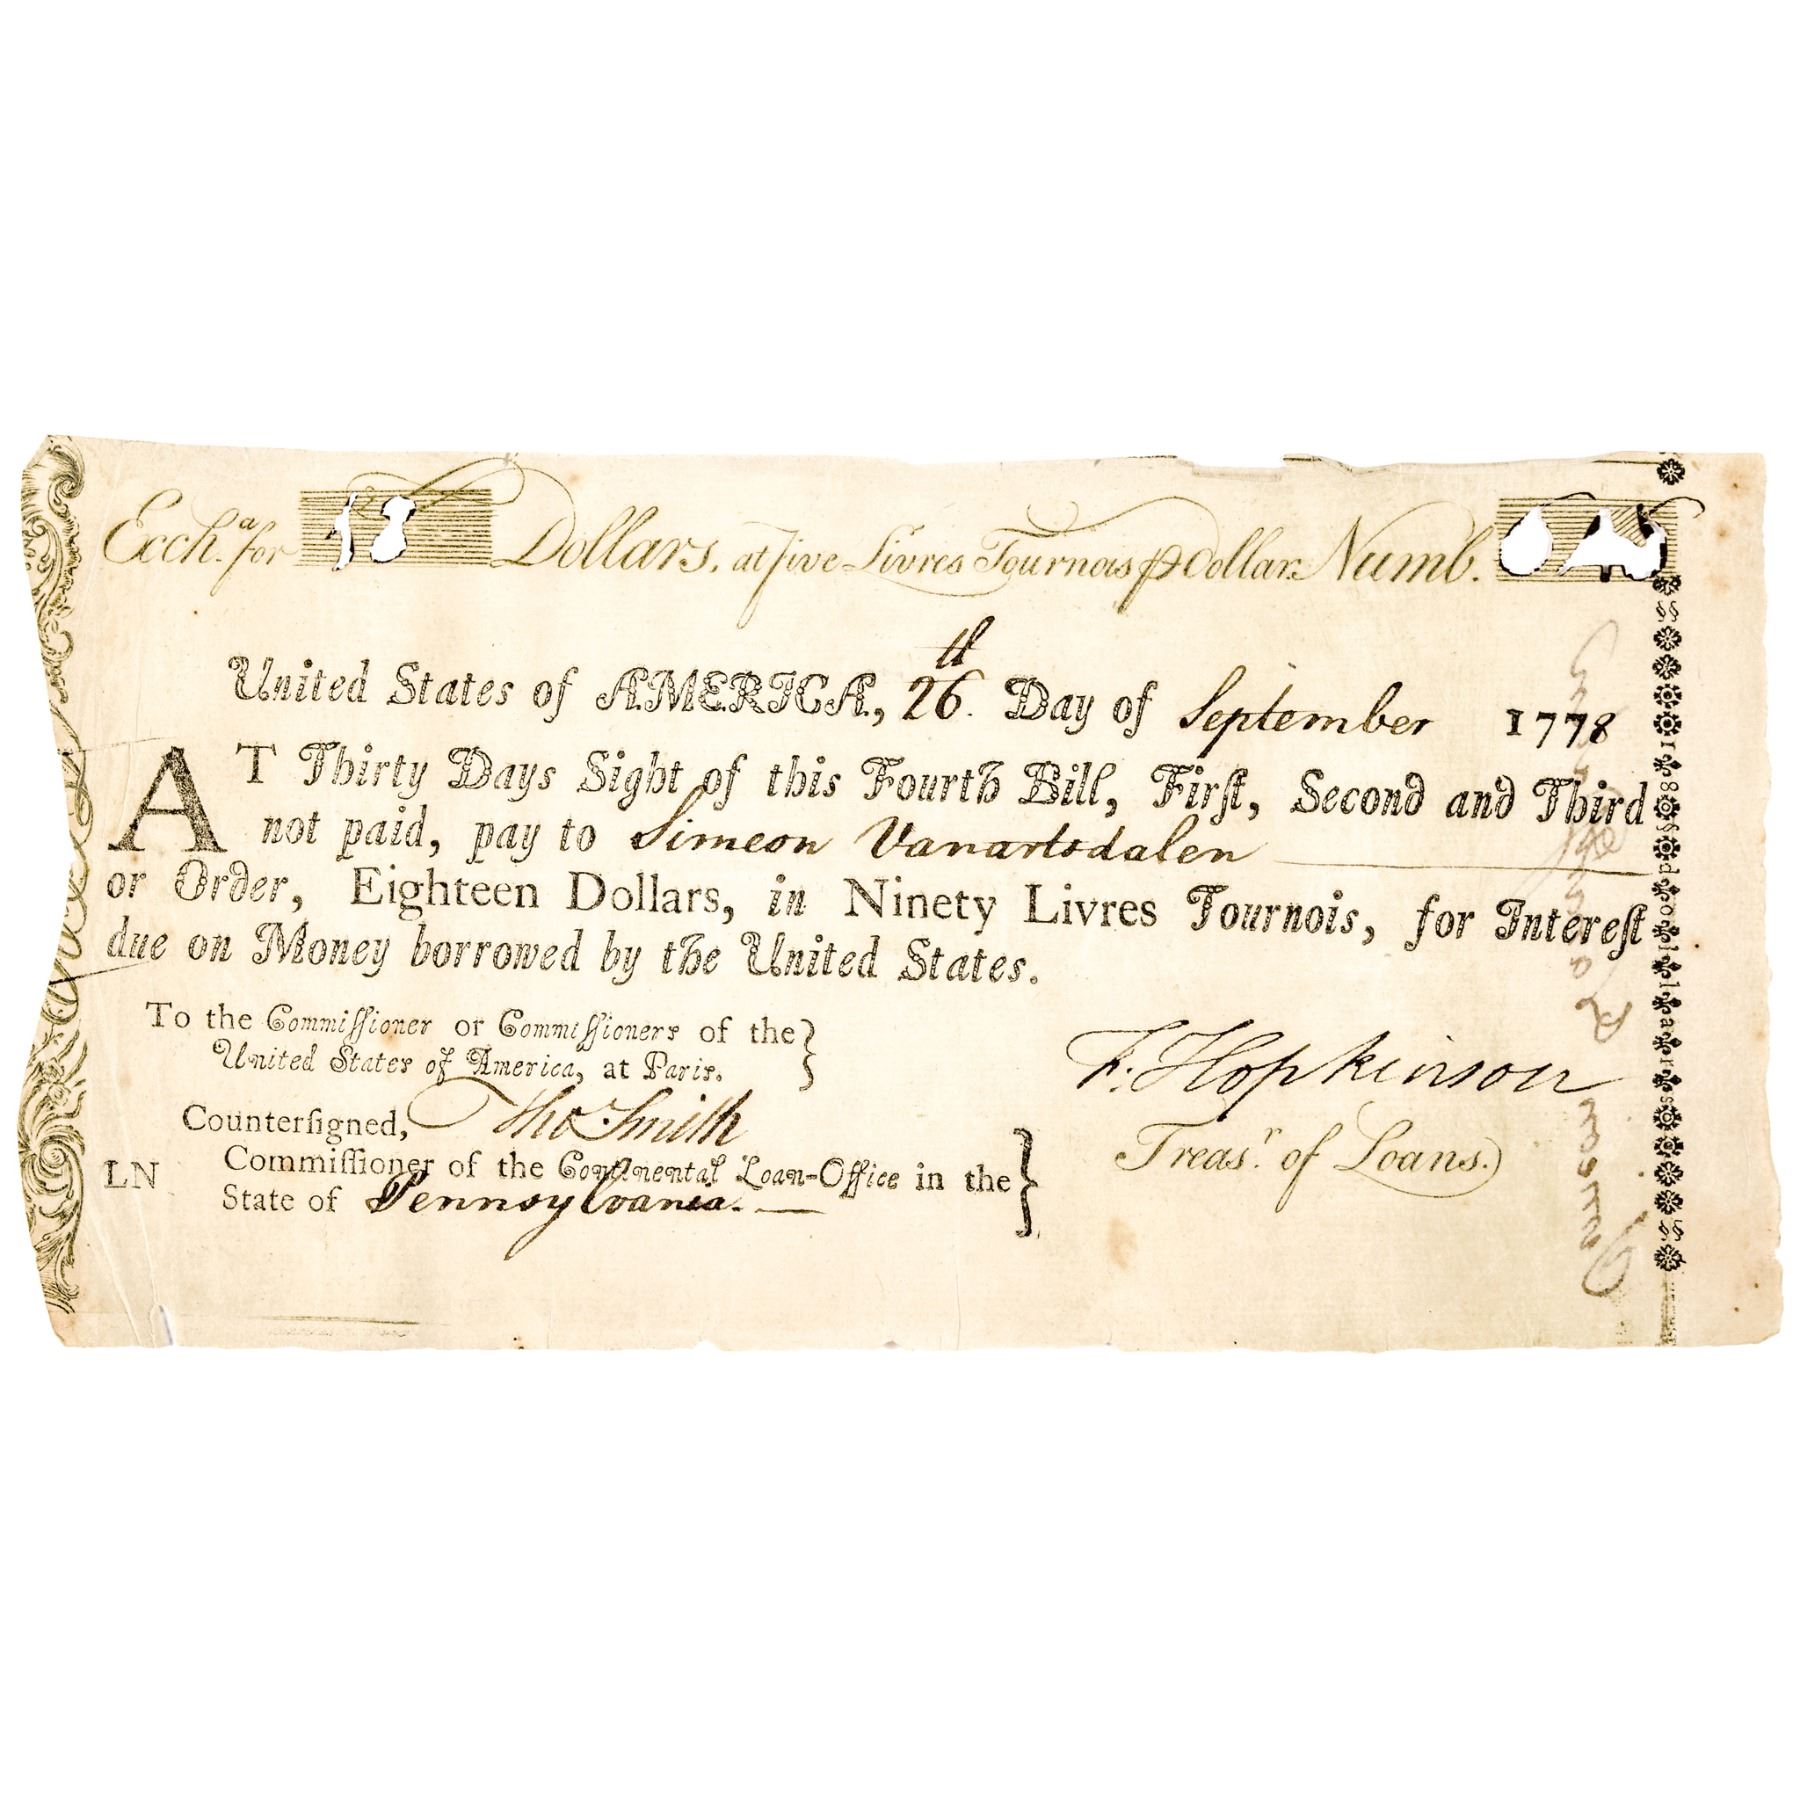 Exch.ª for 18 Dollars, at five Livres Tournois ⅌ Dollar. Numb.
United States of AMERICA, 26th. Day of September 1778
AT Thirty Days Sight of this Fourth Bill, Firſt, Second and Third
not paid, pay to Simeon Vanartsdalen
or Order, Eighteen Dollars, in Ninety Livres Tournois, for Intereſt
due on Money borrowed by the United States.
To the Commiſſioner or Commiſſioners of the
United States of America, at Paris.
F. Hopkinson
Treas.r of Loans.
Counterſigned, Tho Smith
LN Commiſſioner of the Continental Loan-Office in the
State of Pennsylvania.
18 Dollars